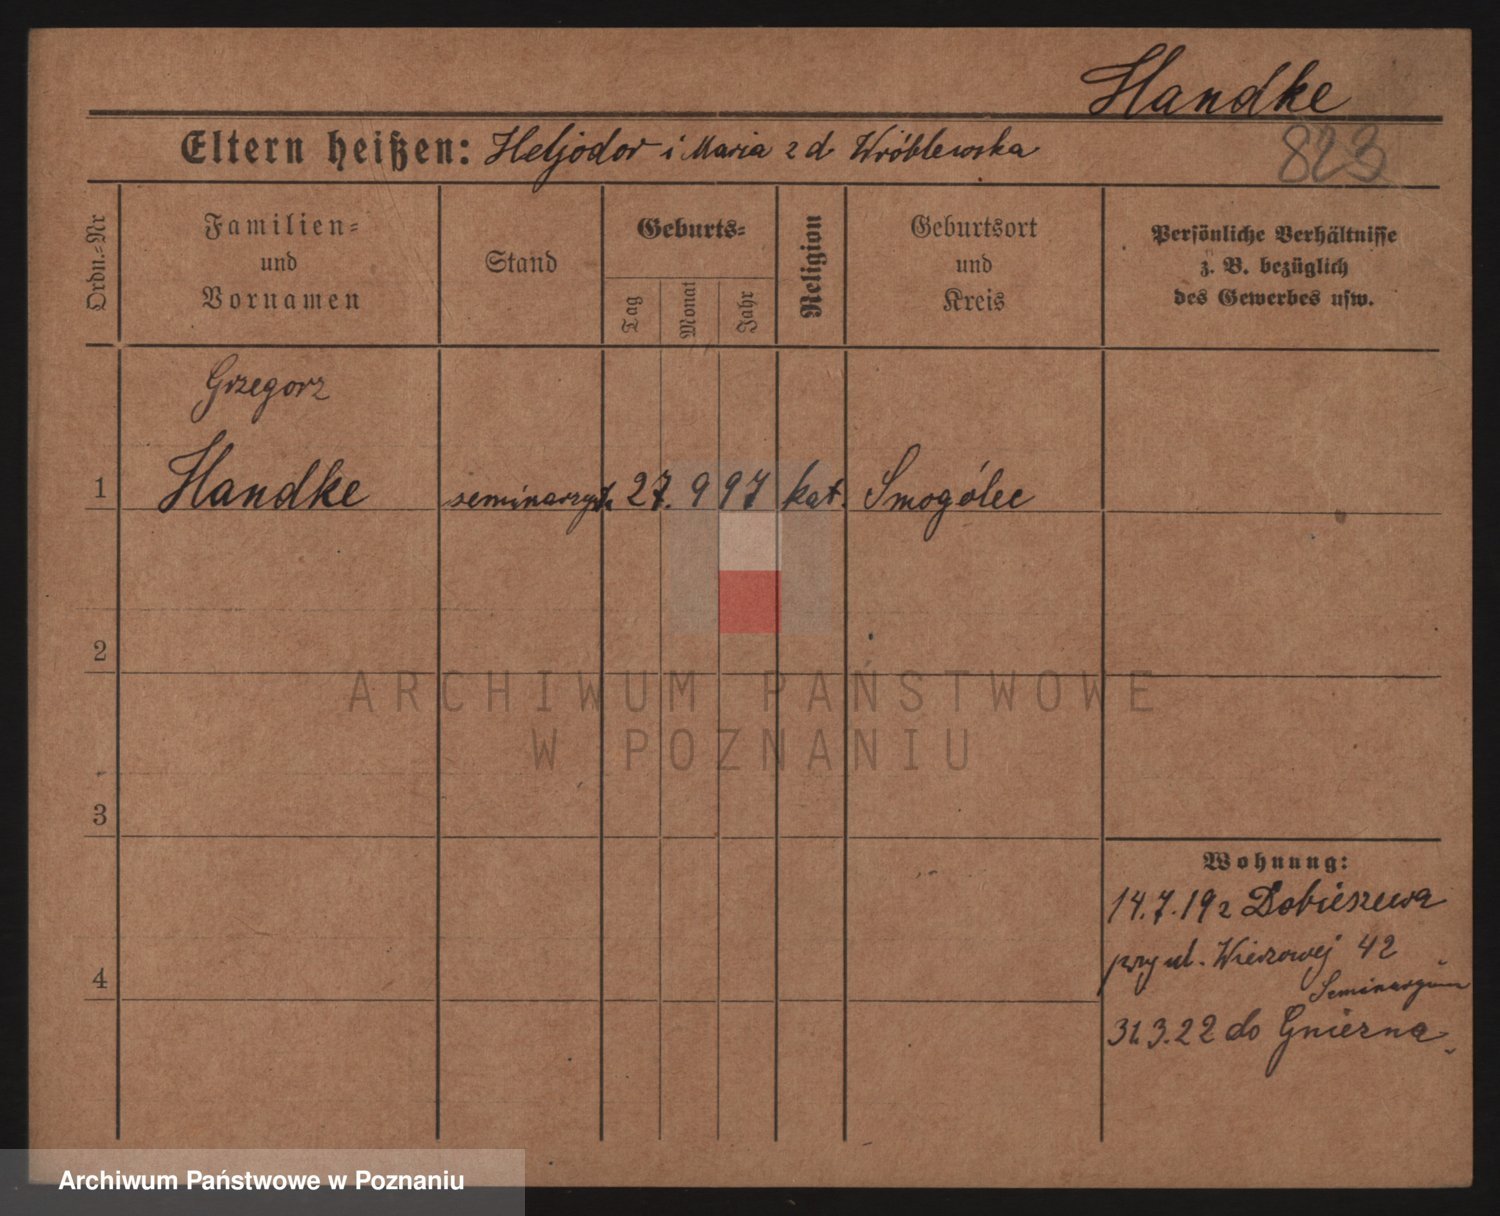 Handke
823
Eltern heißen: Heljodor i Maria z d Wróblewska
Ordn.-Nr
Familien-
und
Vornamen
Stand
Geburts-
Tag
Monat
Jahr
Religion
Geburtsort
und
Kreis
Persönliche Verhältnisse
z. B. bezüglich
des Gewerbes usw.
Grzegorz
1 Handke seminarzysta 27. 9 97 kat. Smogólec
2
ARCHIWUM PAŃSTWOWE
W POZNANIU
3
Wohnung:
14.7.19 z Dobieszewa
przy ul. Wieżowej 42
Seminaryum
4
31.3.22 do Gniezna
Archiwum Państwowe w Poznaniu